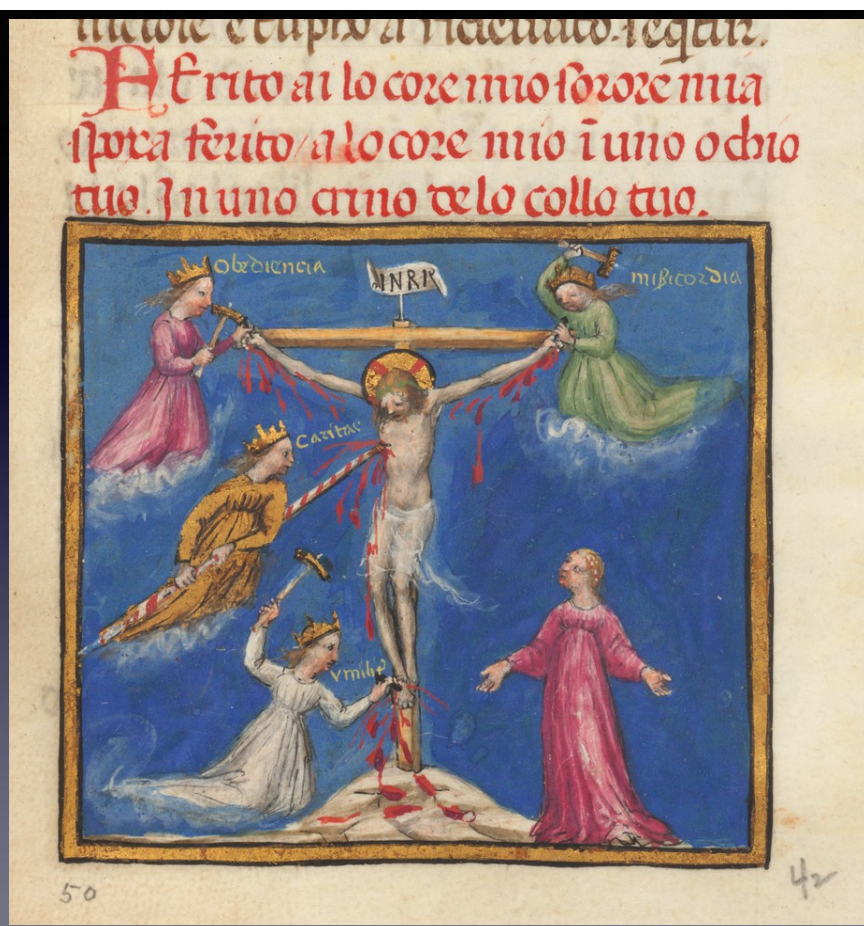 FErito ai lo core mio sorore mia
spoxa ferito a lo core mio ī uno ochio
tuo. In uno crino de lo collo tuo.
Obediencia
INRI
misicordia
Caritas
Vmilit
50
42